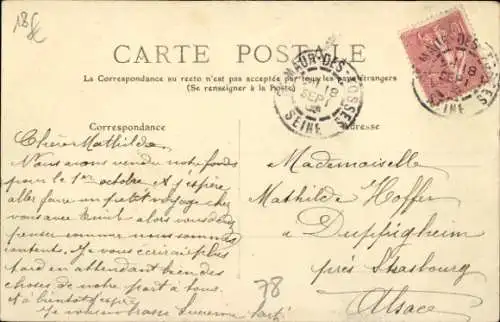 18f
CARTE POSTALE
La Correspondance au recto n'est pas acceptée par tous les pays étrangers
(Se renseigner à la Poste)
ST MAUR-DES-FOSSÉS
18
SEPT
SEINE
Correspondance
Adresse
Chère Mathilde
Nous avons vendu notre fonds
pour le 1er octobre et j'espère
aller faire un petit voyage chez
vous avec alors vous devez
penser comme nous sommes
contents. Je vous écrirai plus
tard en attendant bien des
choses de notre part à tous.
A bientôt j'espère
Je vous embrasse Lucienne
Mademoiselle
Mathilde Hoffer
à Duppigheim
près Strasbourg
Alsace
78